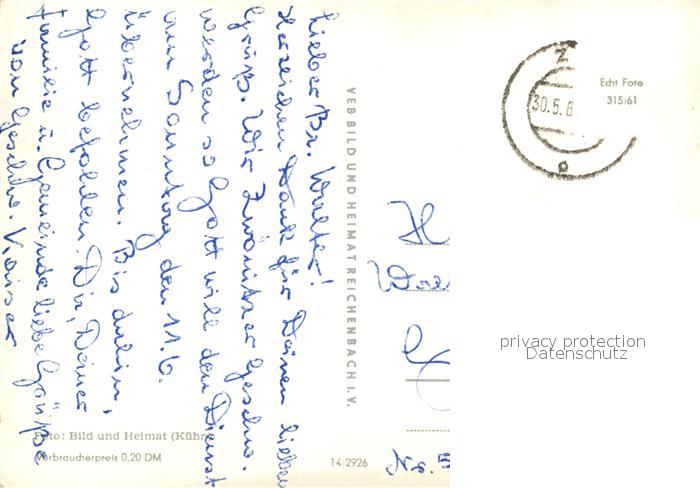 Lieber Br. Walter!
Herzlichen Dank für Deinen lieben
Gruß. Wir Zwönitzer Geschw.
werden so Gott will den Dienst
am Sonntag den 11.6.
übernehmen. Bis dahin,
Gott befohlen. Dir, Deiner
Familie u. Gemeinde liebe Grüße
von Geschw. Kaiser
VEB BILD UND HEIMAT REICHENBACH I. V.
Z
30.5.6
Echt Foto
315/61
H
privacy protection
Datenschutz
Foto: Bild und Heimat (Kühn)
Verbraucherpreis 0.20 DM
14/2926
Nr.